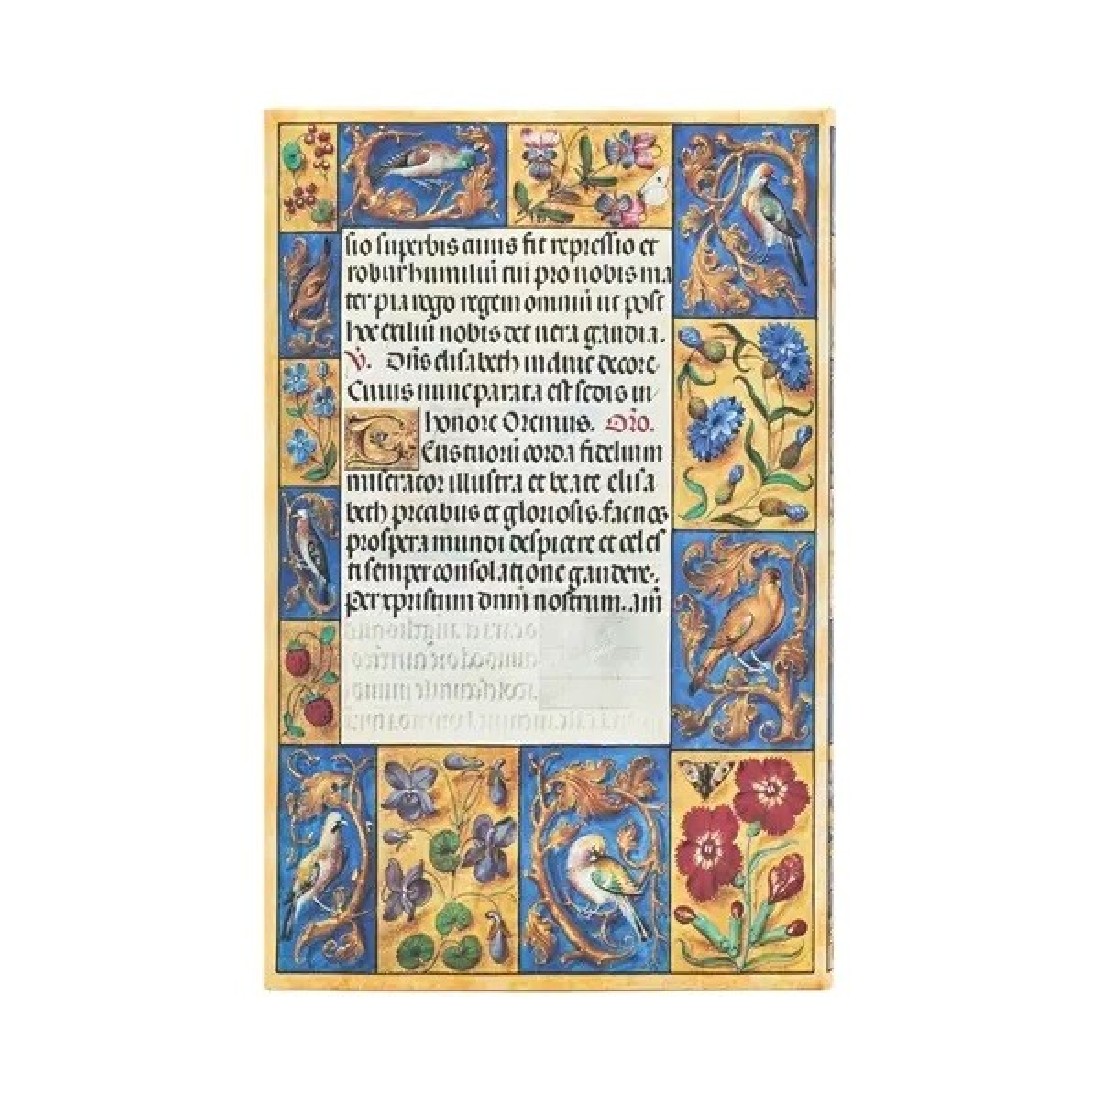 sio superbis cuius fit repressio et
robur humiliũ tui pro nobis ma
ter pia rogo regem omniũ ut post
hoc exiliũ nobis det vera gaudia.
V. Dñs elisabeth induit decore
Cuius nunc parata est sedis in
honore Oremus. Orõ.
Tuorũ corda fidelium
miserator illustra et beate elisa
beth precibus et gloriosis. fac nos
prospera mundi despicere et celes
ti semper consolatione gaudere.
Per xpristum dnm̃ nostrum. am̃